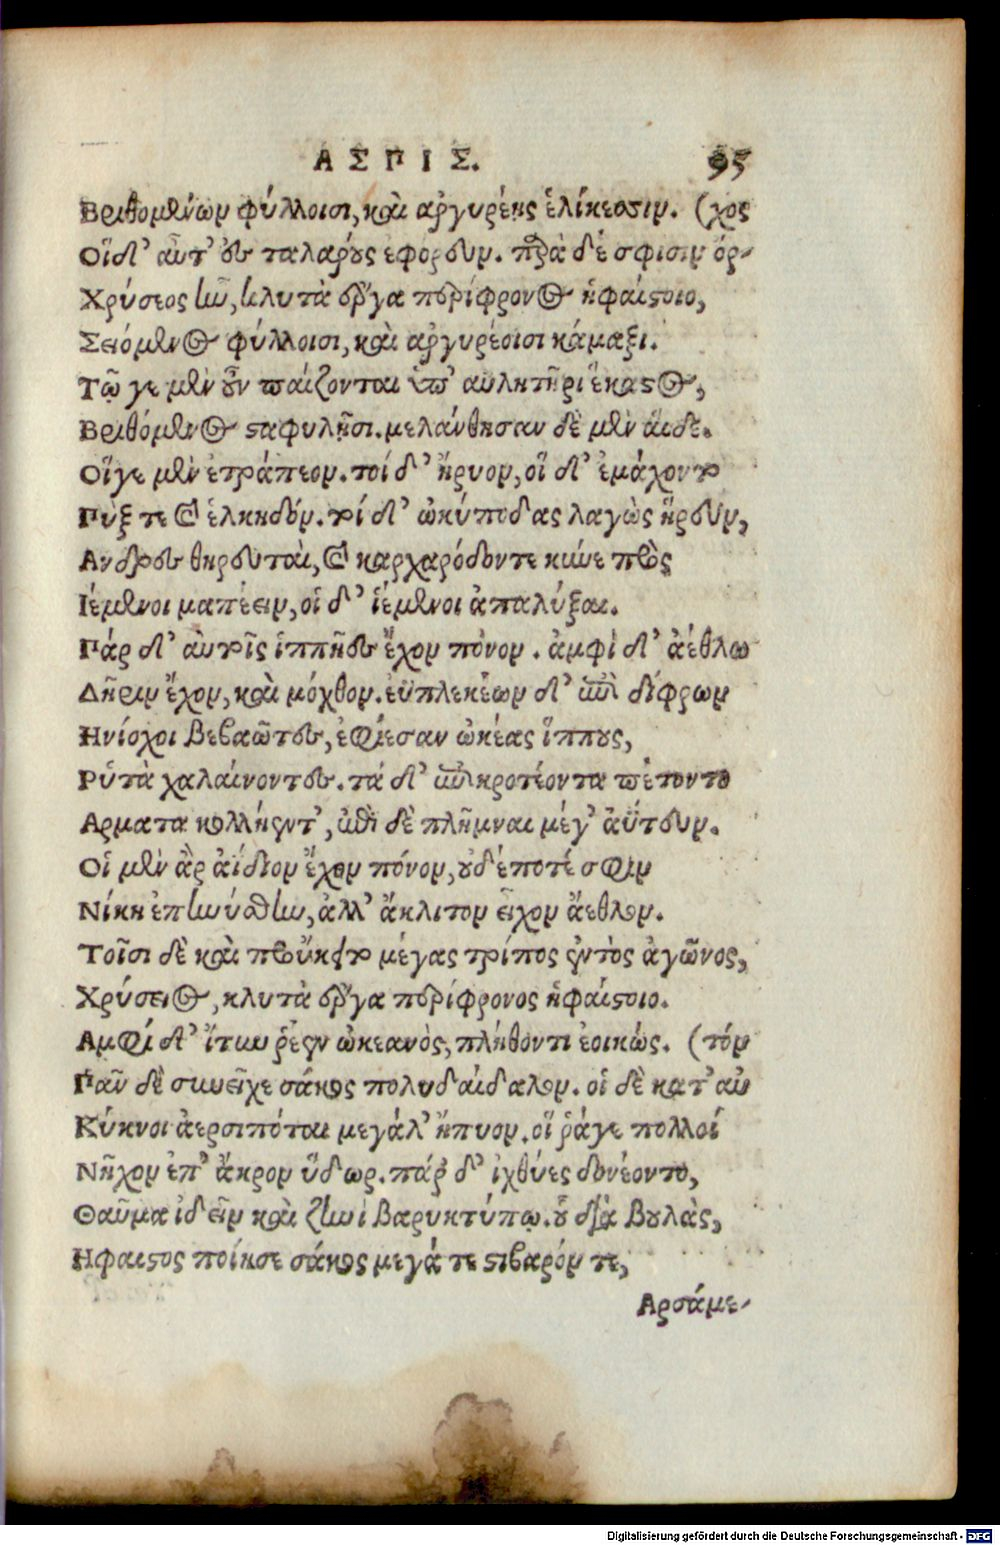 ΑΣΠΙΣ. 95
Βριθομένων φύλλοισι, καὶ ἀργυρέῃς ἑλίκεσσιν. (χος
Οἵδ' αὖτ' ἐς ταλάρους ἐφορευν. παρὰ δέ σφισιν ὄρ-
Χρύσεος ἦν, κλυτὰ ἔργα περίφρονος ἡφαίστοιο,
Σειόμενος φύλλοισι, καὶ ἀργυρέοισι κάμαξι.
Τῷ γε μὲν οὖν παίζοντες ὑπ' αὐλητῆρι ἕκαστος,
Βριθόμενος σταφυλῇσι. μελάνθησαν δὲ μὲν αἵδε.
Οἵγε μὲν ἐτράπεον. τοὶ δ' ἤρυον, οἳ δ' ἐμάχοντο
Πύξ τε καὶ ἑλκηδόν. τοὶ δ' ὠκύποδας λαγὼς ᾕρευν,
Ανδρες θηρευταὶ, καὶ καρχαρόδοντε κύνε πρὸς
Ιέμενοι μαπέειν, οἱ δ' ἱέμενοι ἀπαλύξαι.
Πάρ δ' αὐτοῖς ἱππῆες ἔχον πόνον. ἀμφὶ δ' ἀέθλῳ
Δῆριν ἔχον, καὶ μόχθον. ἐϋπλεκέων δ' ἐπὶ δίφρων
Ηνίοχοι βεβαῶτες, ἐφίεσαν ὠκέας ἵππους,
Ρυτὰ χαλαίνοντες. τά δ' ἐπικροτέοντα πέτοντο
Αρματα κολλήεντ', ἐπὶ δὲ πλῆμναι μέγ' ἀΰτευν.
Οἱ μὲν ἂρ ἀΐδιον ἔχον πόνον, οὐδέποτέ σφιν
Νίκη ἐπηνύσθη, ἀλλ' ἄκριτον εἶχον ἄεθλον.
Τοῖσι δὲ καὶ προὔκειτο μέγας τρίπος ἐντὸς ἀγῶνος,
Χρύσειος, κλυτὰ ἔργα περίφρονος ἡφαίστοιο.
Αμφὶ δ' ἴτυν ῥέεν ὠκεανὸς, πλήθοντι ἐοικώς. (τόν
Πᾶν δὲ συνεῖχε σάκος πολυδαίδαλον. οἱ δὲ κατ' αὐ
Κύκνοι ἀερσιπόται μεγάλ' ἤπυον. οἵ ῥάγε πολλοί
Νῆχον ἐπ' ἄκρον ὕδωρ. πάρ δ' ἰχθύες δονέοντο,
Θαῦμα ἰδεῖν καὶ ζηνὶ βαρυκτύπῳ. οὗ διὰ βουλὰς,
Ηφαιστος ποίησε σάκος μεγά τε στιβαρόν τε,
Αρσάμε-
Digitalisierung gefördert durch die Deutsche Forschungsgemeinschaft - DFG